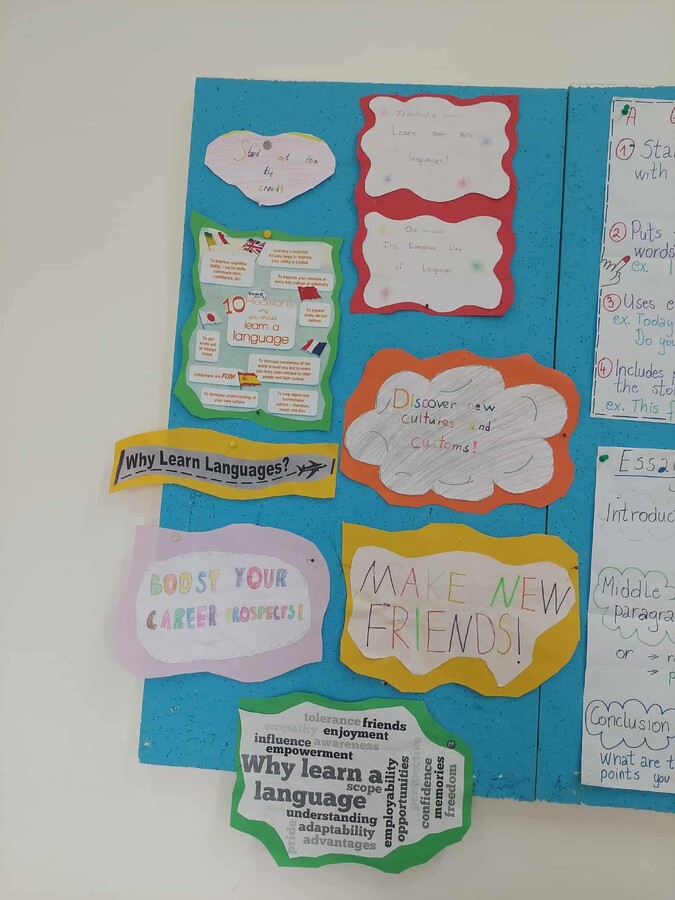 Stand out from
the
crowd!
Learn some new
languages!
It's Everyone Lies
of Languages
To improve cognitive
ability - social skills,
communication,
confidence, etc.
Learning a language
actually helps to improve
your ability in English
To improve your chances of
entry into college or university
10 Reasons
why
you should
learn a
language
To expand
study abroad
options
To get
more out
of foreign
travel
Languages are FUN!
To increase awareness of the
world around you and to make
you more open minded to other
people and their culture
To increase understanding of
your own culture
To help appreciate
international
culture - literature,
music and film
Why Learn Languages?
Discover new
cultures and
customs!
BOOST YOUR
CAREER PROSPECTS!
MAKE NEW
FRIENDS!
tolerance friends
empathy enjoyment
influence awareness
empowerment
Why learn a
scope
language
understanding
adaptability
advantages
pride
employability
opportunities
perspective
confidence
memories
freedom
A
① Sta
with
② Puts
words
ex.
③ Uses e
ex. Today
Do you
④ Includes p
the sto
ex. This f
Essa
Introduc
Middle
paragra
or → r
→ p
Conclusion
What are t
points you